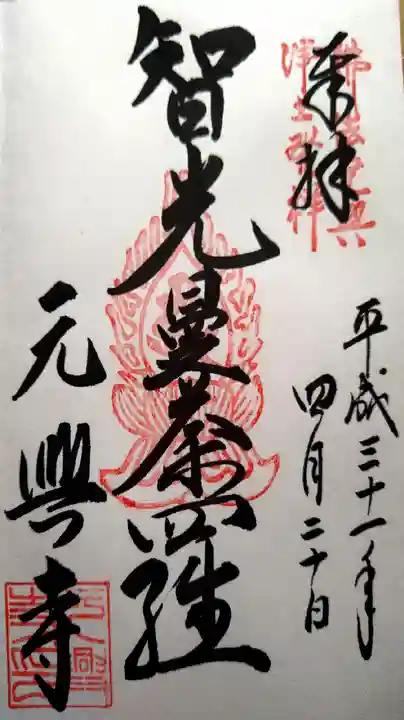 奉拝
平成三十一年
四月二十日
智光曼荼羅
元興寺